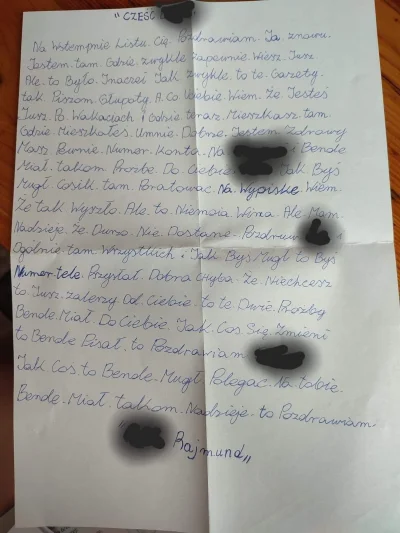 "CZEŚĆ
Na Wstempnie Lista. Cię. Pozdrawiam. Ja. znowu.
Jestem. tam. Gdzie. zwykle Zapewnie. Wiesz. Jusz
Ale. to Było. Inaczei Jak zwykle. to te. Gazety.
tak. Piszom. Głupoty. A. Co. Uebie. Wiem. Że. Jesteś
Jusz. Po. Wakacjach i Gdzie. teraz. Mieszkasz tam.
Gdzie. Mieszkałeś. Umnie. Dobrze. Jestem Zdrowy
Masz Pewnie. Numer. Konta. Na i Bende
Miał. takom Prozbe. Do. Ciebie Jak Byś
Mugł. Cosik. tam. Poratować. Na Wypiskę. Wiem.
Że tak Wyszło. Ale. to. Niemoia Wina. Ale. Mam.
Nadzieję. Że. Durzo. Nie. Dostane. Pozdruw
Ogólnie. tam. Wrzystkich. i Jak. Byś Mugł to Byś
Numer tele. Przysłał. Dobra Chyba. Że. Niechcesz
to Jusz. zalerzy Od. Ciebie. to te. Dwie. Prozby
Bende. Miał. Do Ciebie. Jak. Cos Się. Zmieni
to Bende Pisał. to Pozdrawiam
Jak Cos to Bende. Mugł Polegac. Na tobie.
Bende. Miał. takom. Nadzieje. to Pozdrawiam
" Rajmund"